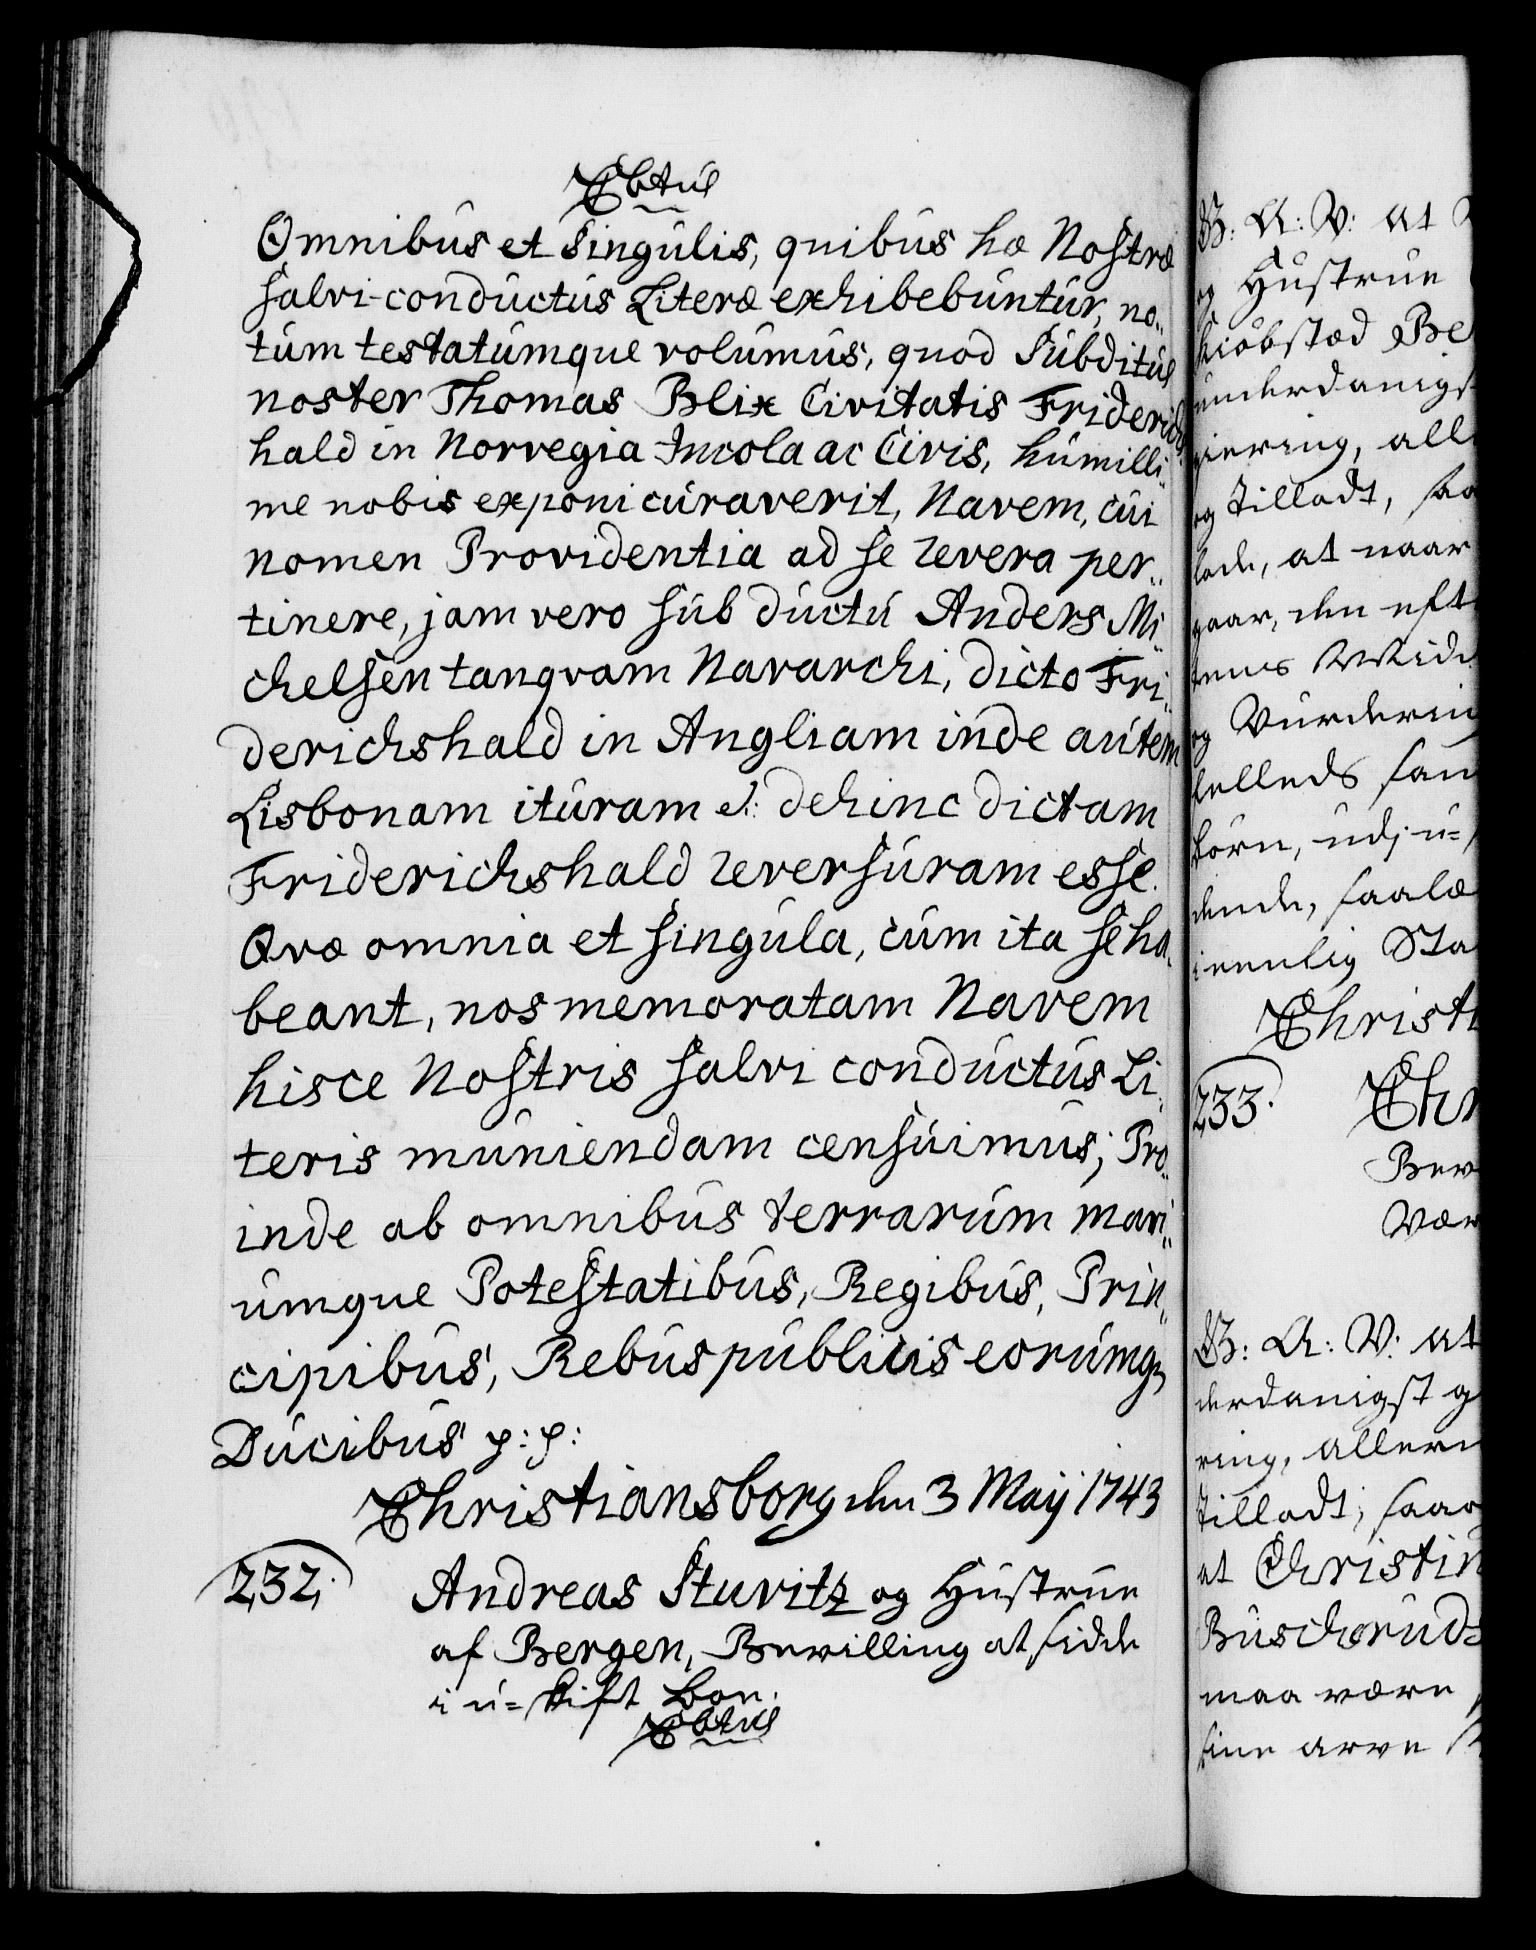 Cbtus
Omnibus et Singulis, quibus hæ Nostræ
salvi-conductus Literæ exhibebuntur, no..
tum testatumque volumus, quod Subditus
noster Thomas Blix Civitatis Friderichs
hald in Norvegia Incola ac Civis, humilli..
me nobis exponi curaverit, Navem, cui
nomen Providentia ad se revera per..
tinere, jam vero sub ductu Anders Mi..
chelsen tanqvam Navarchi, dicto Fri..
derichshald in Angliam inde autem
Lisbonam ituram et: dehinc dictam
Friderichshald reversuram esse.
Qvæ omnia et singula, cum ita se ha..
beant, nos memoratam Navem
hisce Nostris salvi conductus Li..
teris muniendam censuimus; Pro..
inde ab omnibus terrarum mari..
umque Potestatibus, Regibus, Prin..
cipibus, Rebuspublicis eorumq
Ducibus p: p:
Christiansborg den 3 Maij 1743
232. Andreas Sturitz og Hustrue
af Bergen, Bewilling at sidde
i u-skift Boe.
Cbtus
G: A: V: at
og Hustrue
kiøbstæd Be
underdanigst
giering, all
og tilladt, saa
lede, at naar
gaar, den eft
tenes Middel
og Vurdering
felleds sam
børn, udj u=
dende, saalæ
ienlig Sta
Christi
233. Chr
Bew
Vær
G: A: V: at
derdanigst
ring, allern
tilladt; saa
at Christin
Buscherud=
maa være
sine arve